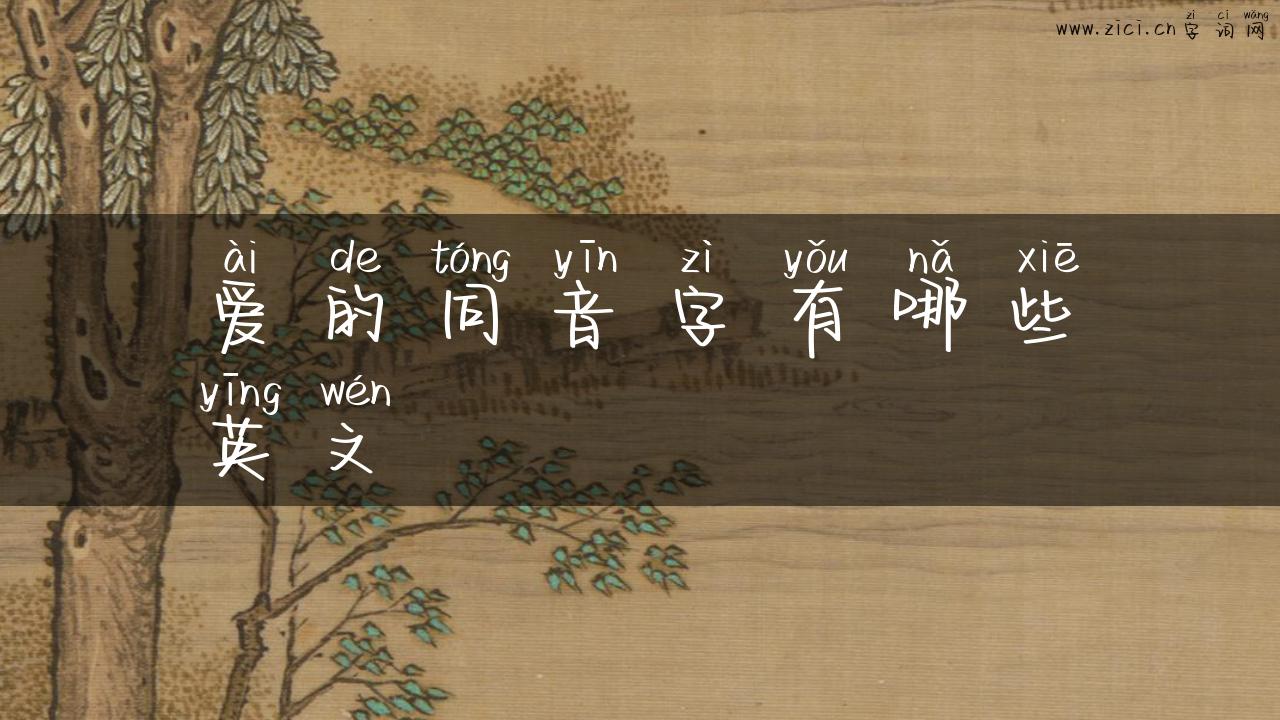 zì cí wǎng
www.zici.cn 字词网
ài de tóng yīn zì yǒu nǎ xiē
爱的同音字有哪些
yīng wén
英文